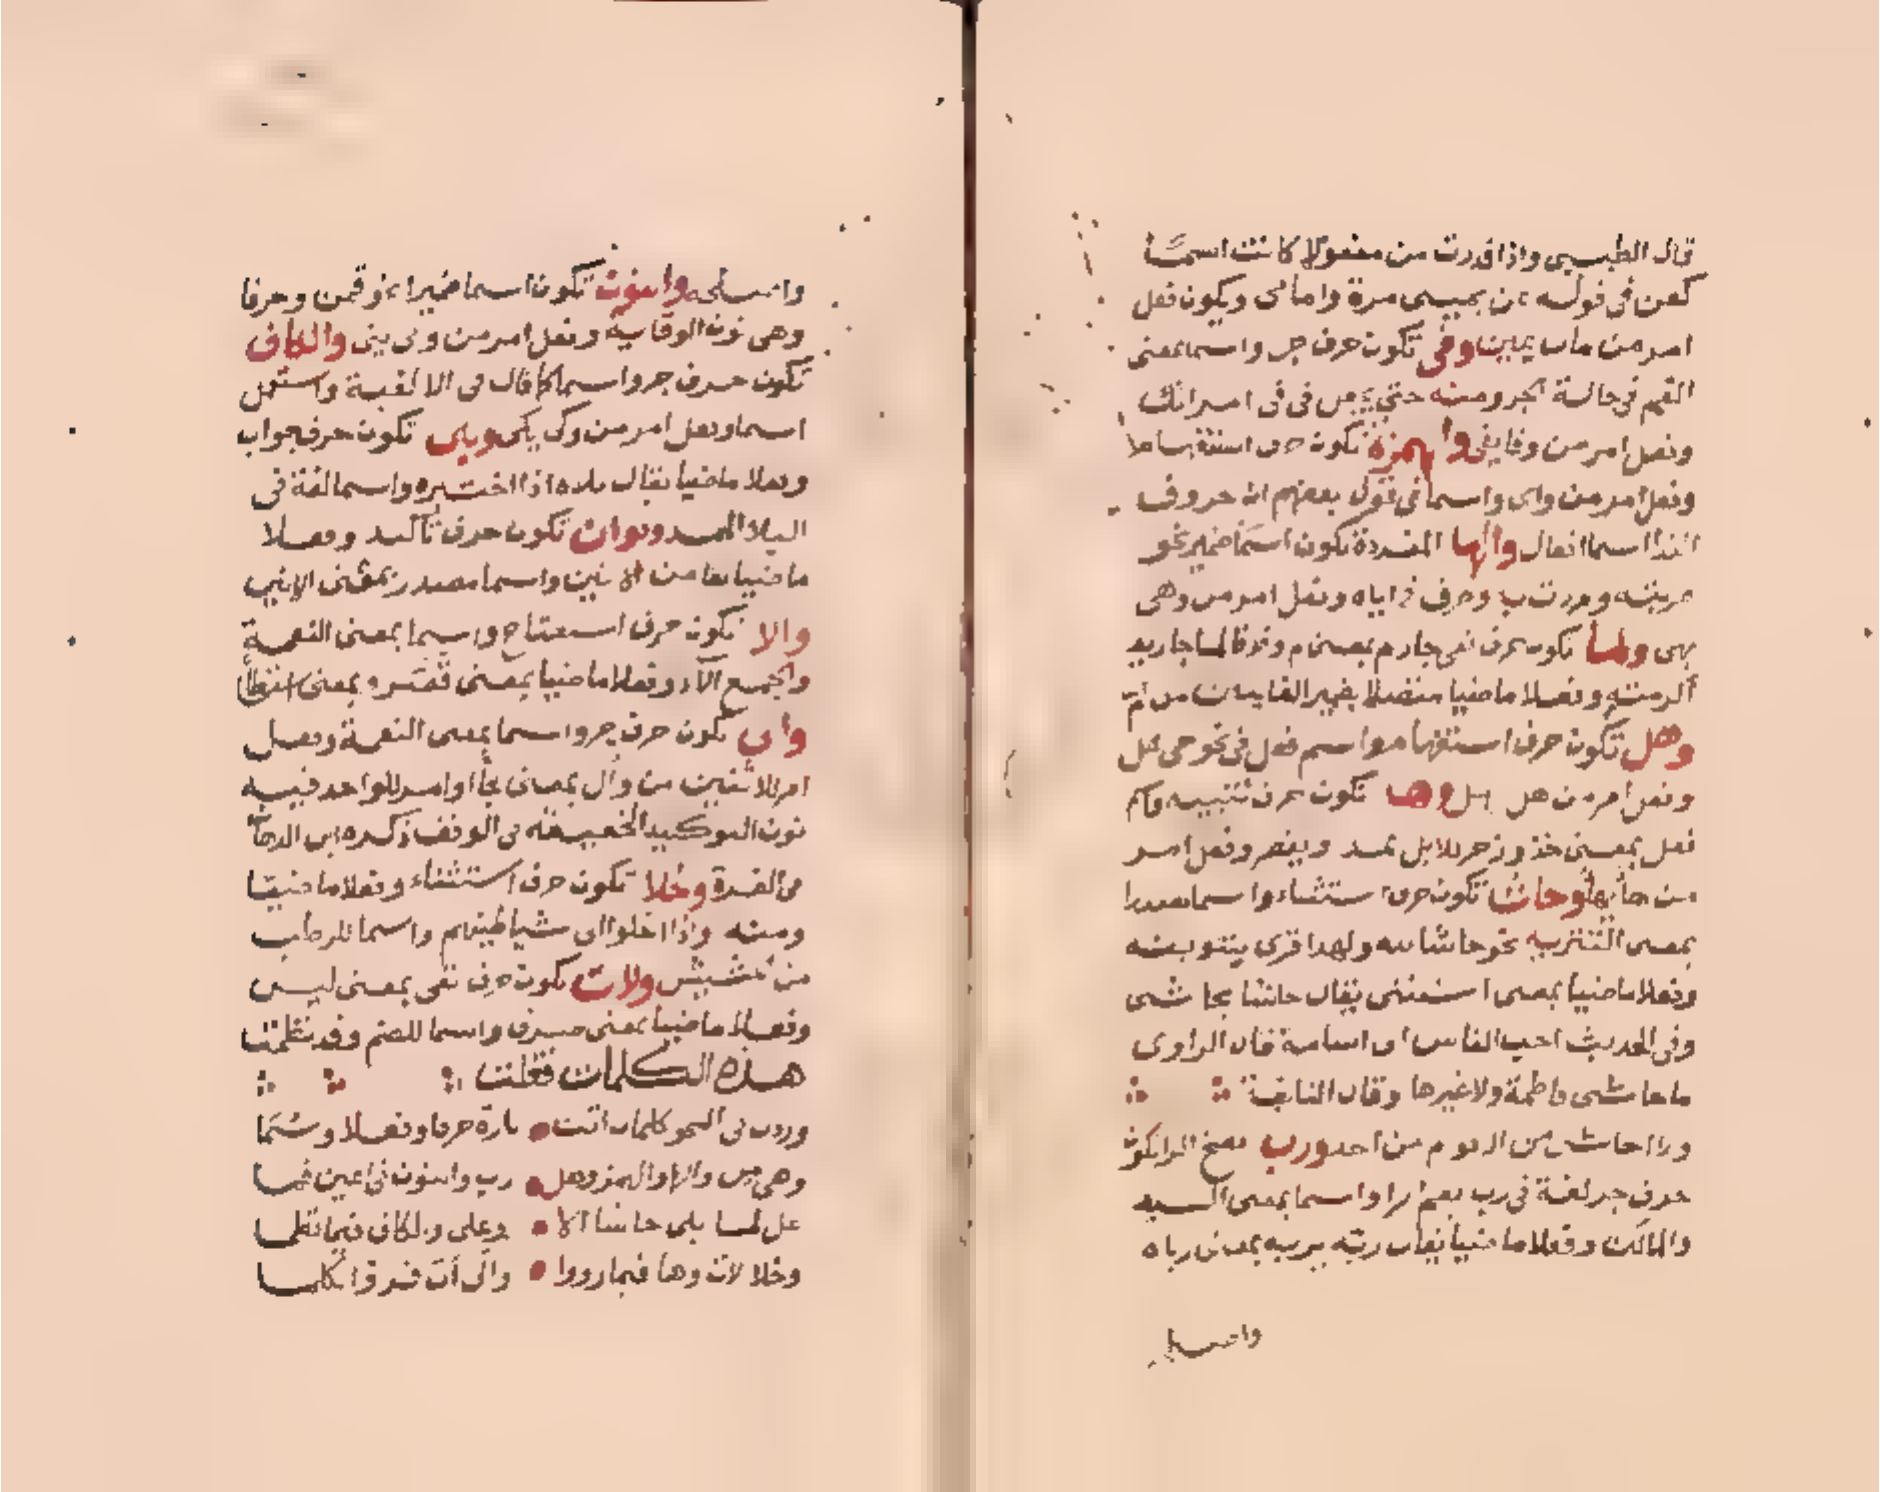 قال الطيبي واذا قدرت من مفعولا كانت اسما
كعن في قوله من عن يميني مرة وامامي ويكون فعل
امر من مان يمين وفي تكون حرف جر واسما بمعنى
الفم في حالة الجر ومنه حتى يجعل في في امرانك
وفعل امر من وفا يفي والهمزة تكون حرف استفهام
وفعل امر من واى واسما في قول بعضهم ان حروف
الندا اسما افعال والها المفردة تكون اسما ضمير نحو
ضربته ومررت به وحرف في اياه وفعل امر من وهى
يهي ولما تكون حرف نفي جازم بمعنى لم وظرفا لما جا زيد
اكرمته وفعلا ماضيا متصلا بضمير الغايبات من لم
وهل تكون حرف استفهام واسم فعل في نحو حي هل
وفعل امر من هل يهل وها تكون حرف تنبيه واسم
فعل بمعنى خذ وزجر للابل يمد ويقصر وفعل امر
من هاء يهاء وحاشا تكون حرف استثناء واسما مصدرا
بمعنى التنزيه نحو حاشا لله ولهذا قرى بتنوينه
وفعلا ماضيا بمعنى استثنى يقال حاشا يحاشي
وفي الحديث احب الناس الى اسامة قال الراوي
ما حاشى فاطمة ولا غيرها وقال النابغة
ولا احاشي من الاقوام من احد ورب بفتح الرا تكون
حرف جر لغة في رب بضم الرا واسما بمعنى السيد
والمالك وفعلا ماضيا يقال ربه يربه بمعنى رباه
واصلحه
واصلحه والنون تكون اسما ضميرا نحو قمن وحرفا
وهي نون الوقاية وفعل امر من ونى يني والكاف
تكون حرف جر واسما كما قال في الالفية واستعمل
اسما وفعل امر من وكى يكي وبلى تكون حرف جواب
وفعلا ماضيا يقال بلاه اذا اختبره واسما لغة في
البلاء الممدود وان تكون حرف تأكيد وفعلا
ماضيا من الانين واسما مصدر بمعنى الانين
والا تكون حرف استفتاح واسما بمعنى النعمة
والجمع الآء وفعلا ماضيا بمعنى قصر وبمعنى استطاع
والى تكون حرف جر واسما بمعنى النعمة وفعل
امر للاثنين من وأل بمعنى لجأ او امر للواحد فيه
نون التوكيد الخفيفة في الوقف ذكره ابن الدهان
في الغرة وخلا تكون حرف استثناء وفعلا ماضيا
ومنه واذا خلوا الى شياطينهم واسما للرطب
من الحشيش ولات تكون حرف نفي بمعنى ليس
وفعلا ماضيا بمعنى صرف واسما للصنم وقد نظمت
هذه الكلمات فقلت
وردت في النحو كلمات اتت تارة حرفا وفعلا وسما
وهي من والها والهمز وهل رب والنون في اعين فما
عل لما بلى حاشا الا وعلى والكاف فيما نظما
وخلا لات وها فيما رووا والى أن فرووا كلما